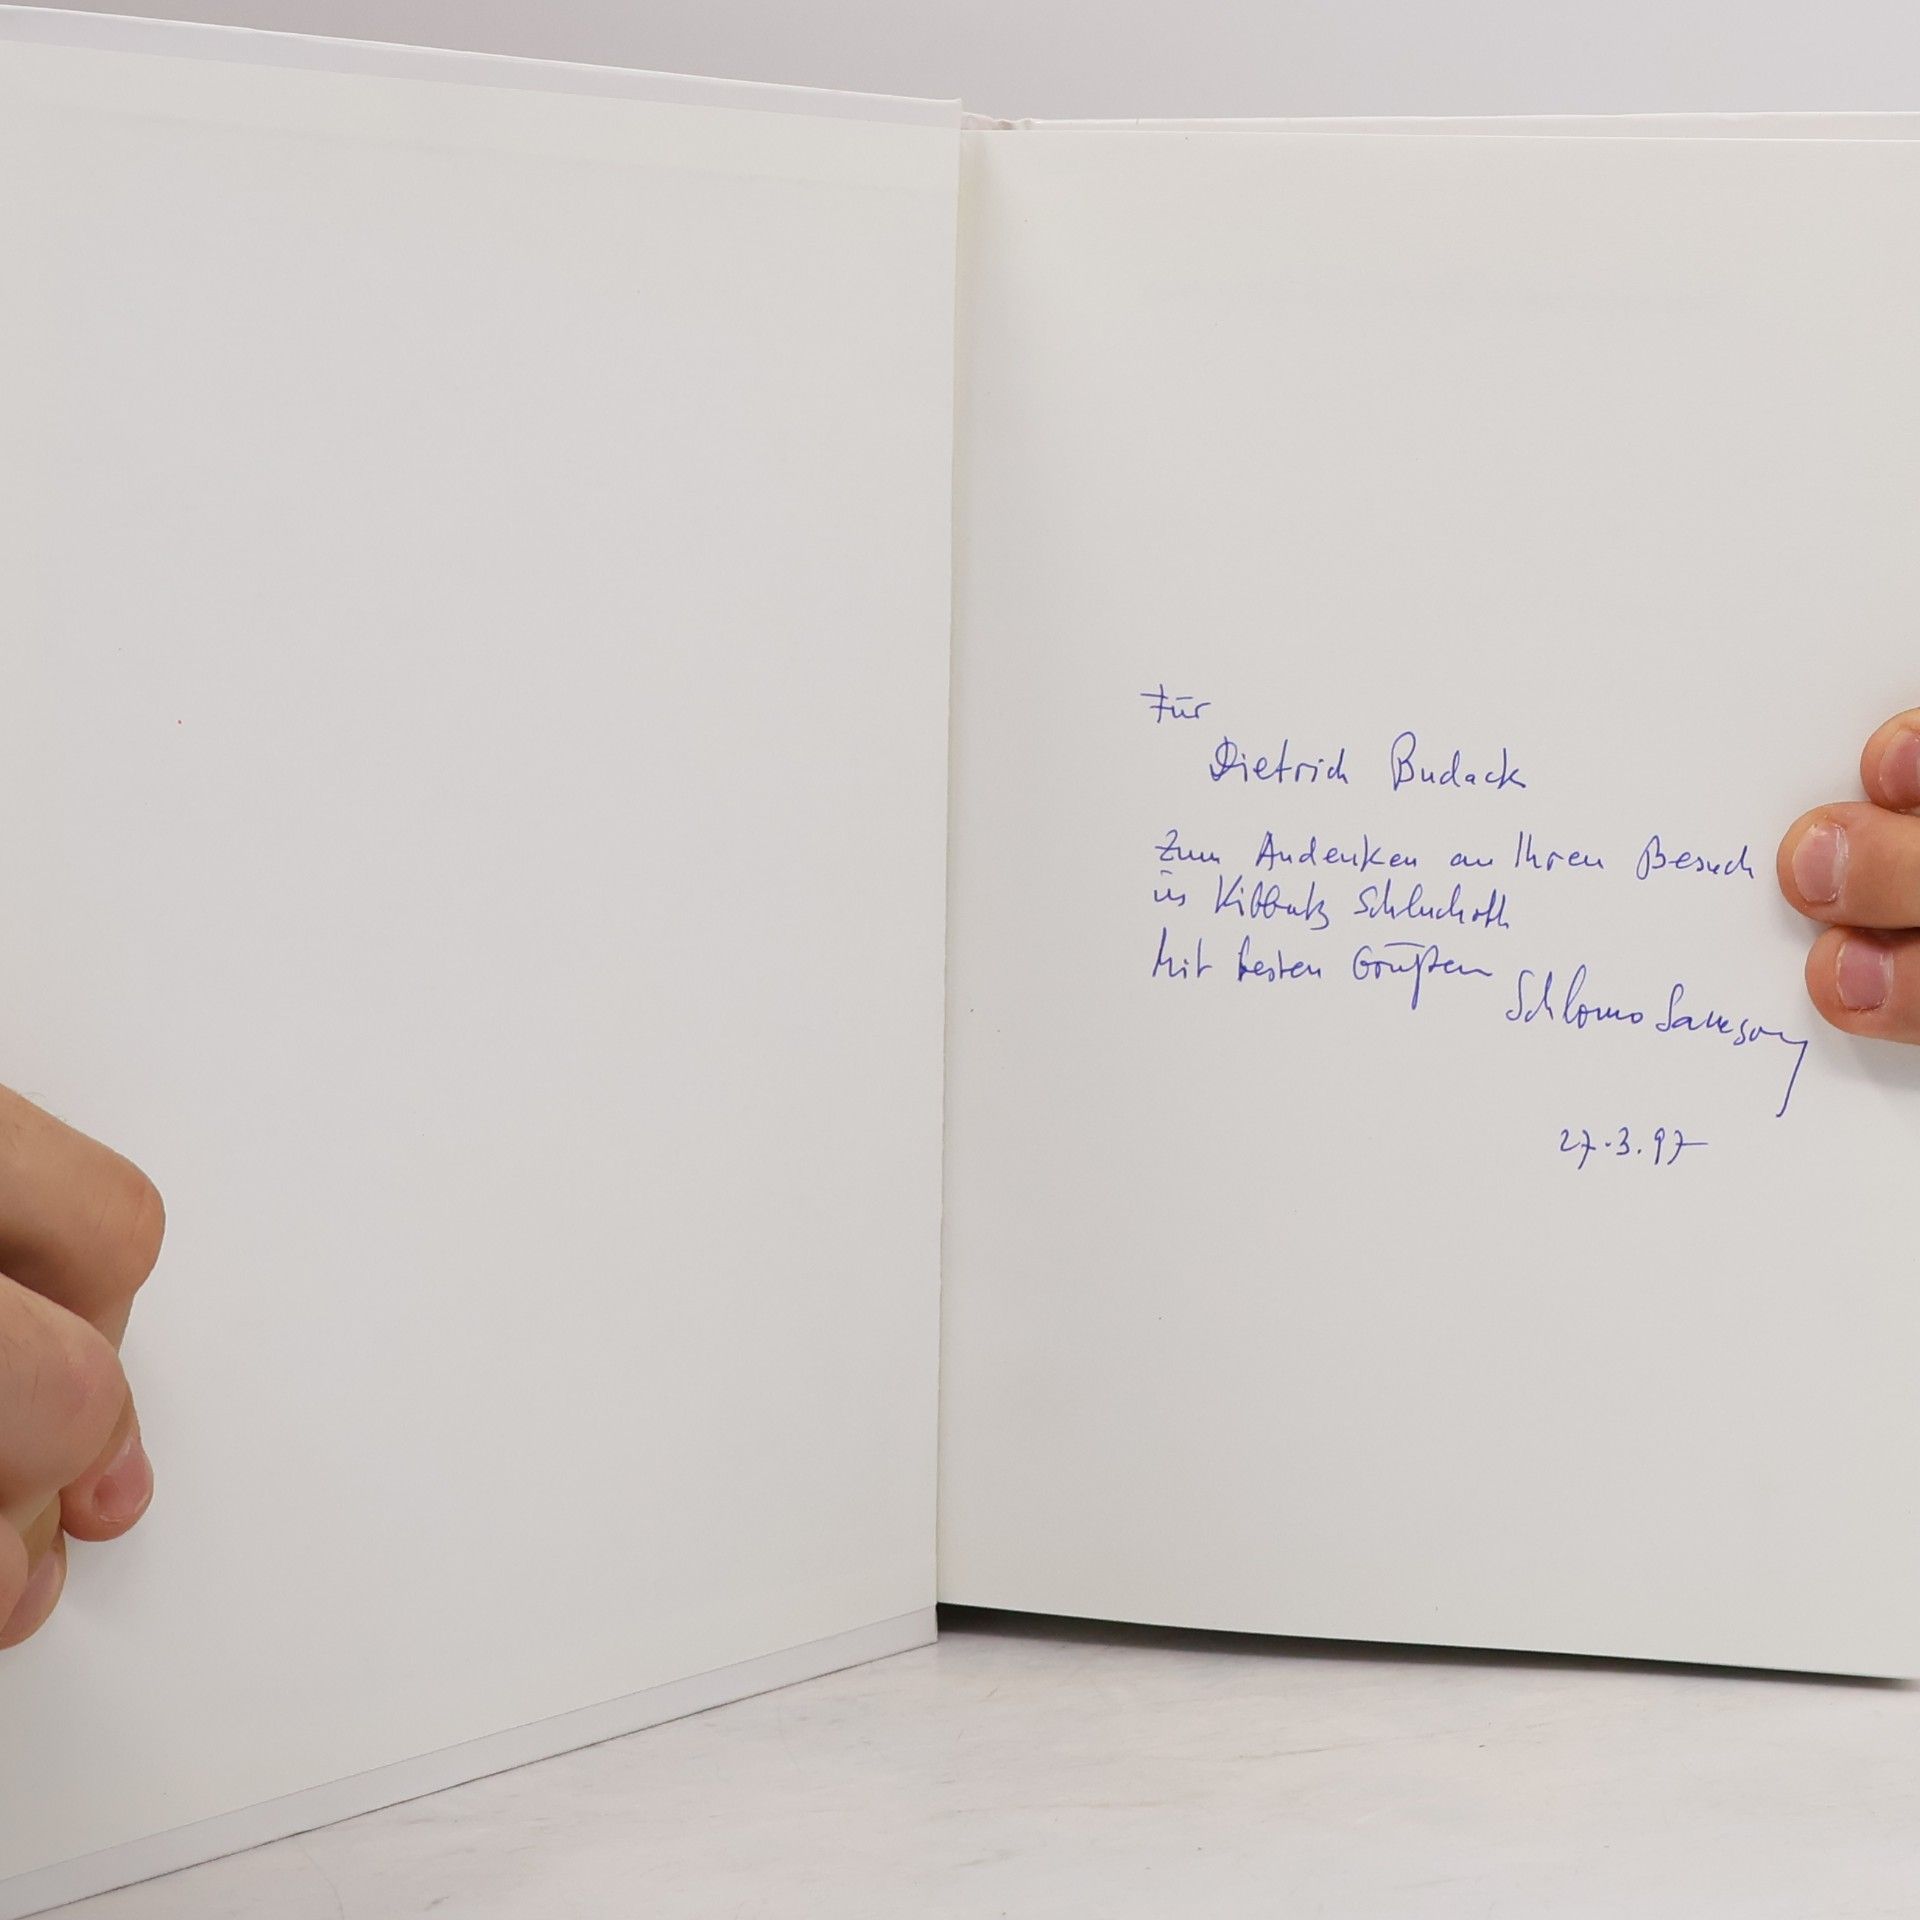 Für
Dietrich Budack
Zum Andenken an Ihren Besuch
in Kibbutz Schluchoth
Mit besten Grüßen
Schlomo Samson
27.3.97